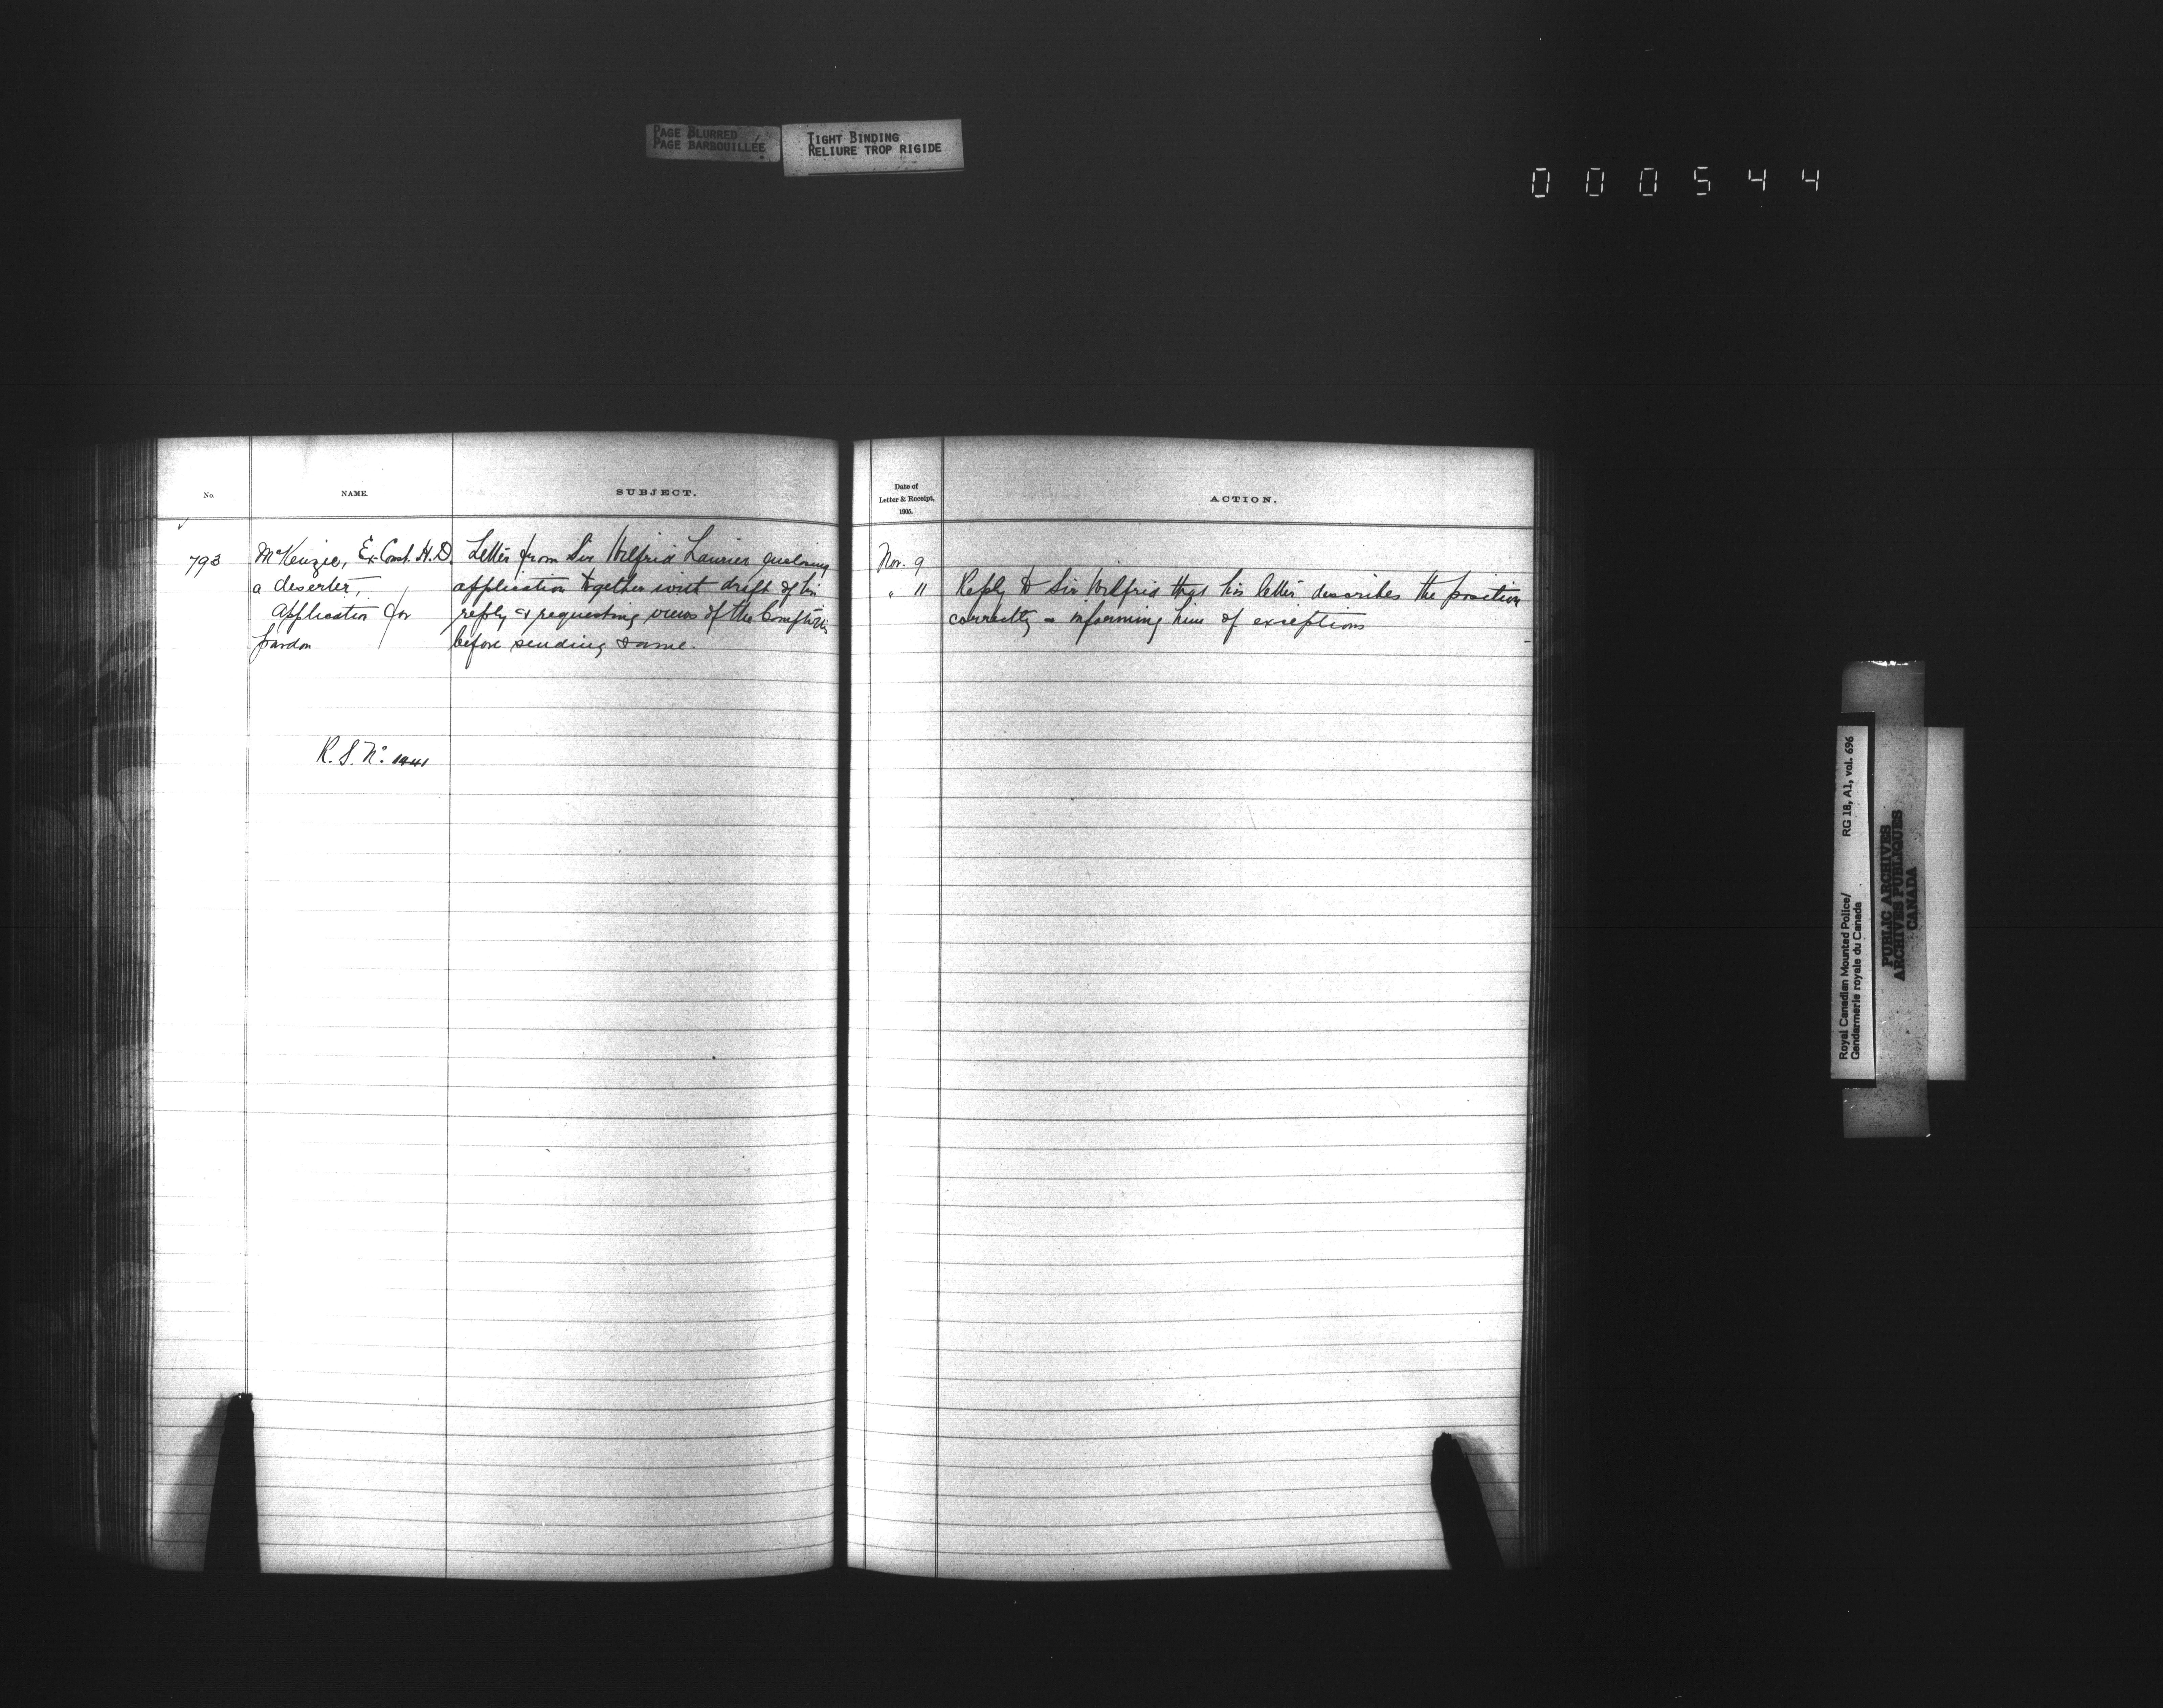 PAGE BLURRED
PAGE BARBOUILLÉE
TIGHT BINDING
RELIURE TROP RIGIDE
000544
No.
NAME.
SUBJECT.
793
McKenzie, Ex Const. H.D.
a deserter,
Application for
pardon
R. S. No.
Letter from Sir Wilfrid Laurier enclosing
application together with draft of his
reply & requesting views of the Comptroller
before sending same.
Date of
Letter & Receipt,
1905.
ACTION.
Nov. 9
" 11
Reply to Sir Wilfrid that his letter describes the position
correctly & informing him of exceptions
Royal Canadian Mounted Police/ RG 18, A1, vol. 696
Gendarmerie royale du Canada
PUBLIC ARCHIVES
ARCHIVES PUBLIQUES
CANADA